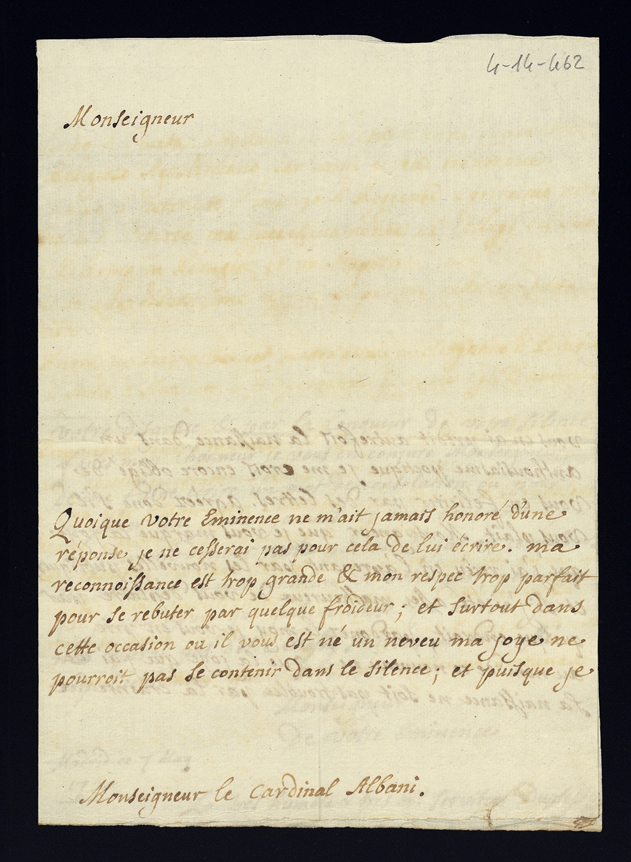 4-14-462
Monseigneur
Quoique votre Eminence ne m'ait jamais honoré d'une
réponse je ne cesserai pas pour cela de lui écrire. ma
reconnoissance est trop grande & mon respec trop parfait
pour se rebuter par quelque froideur; et surtout dans
cette occasion où il vous est né un neveu ma joye ne
pourroit pas se contenir dans le silence; et puisque je
Monseigneur le Cardinal Albani.